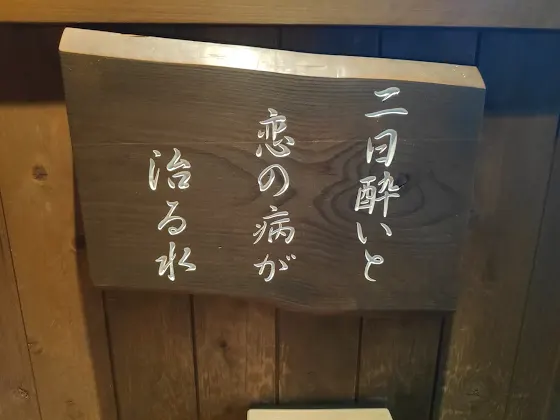 二日酔いと
恋の病が
治る水